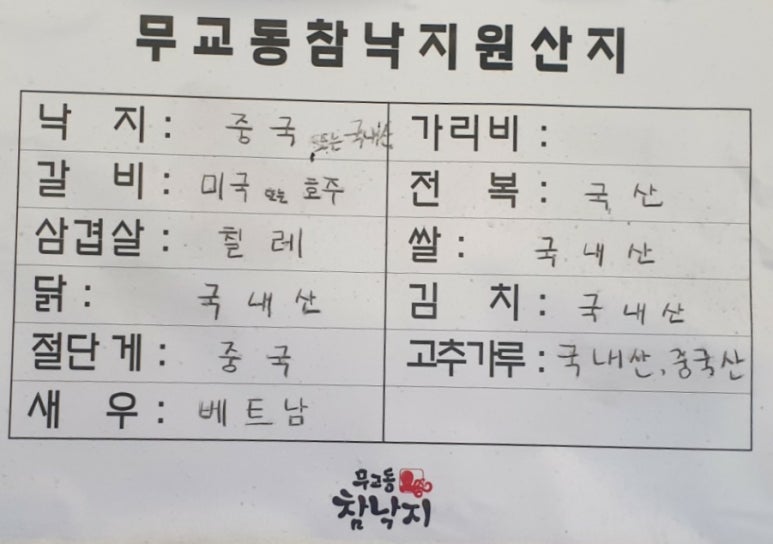 무교동참낙지원산지
낙 지 : 중국 또는 국내산
가리비 :
갈 비 : 미국 또는 호주
전 복 : 국산
삼겹살 : 칠레
쌀 : 국내산
닭 : 국내산
김 치 : 국내산
절단게 : 중국
고추가루 : 국내산, 중국산
새 우 : 베트남
무교동
참낙지